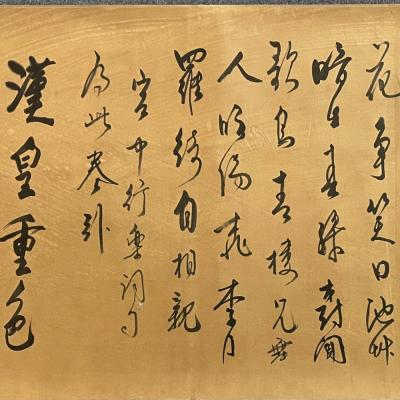 花爭笑日池艸
暗生春綠樹聞
歌鳥青樓見舞
人昭陽桃李月
羅綺自相親
宮中行樂詞
為此卷
漢皇重色